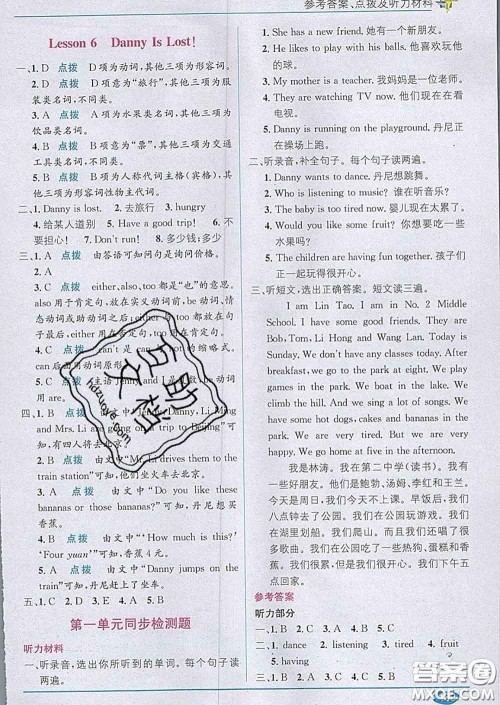 参考答案、点拨及听力材料
Lesson 6 Danny Is Lost!
一、1. D 点拨 D项为动词,其他三项为形容词。
2. D 点拨 D项意为“旅行”,其他三项为服
装类名词,不同类。
3. A 点拨 A项为水果类名词,其他三项为
饮品类名词。
4. B 点拨 B项意为“票”,其他三项为交通
工具类名词,不同类。
5. B 点拨 B项为人称代词主格(宾格),其
他三项为形容词性物主代词。
二、1. Danny is lost. 2. 去旅行 3. hungry
4. 给某人道别 5. Have a good trip! 6. 不
要担心! 7. Don't run! 8. 多少钱;多少
三、1. A 点拨 由答语可知问句是询问价格。
2. A
3. C 点拨 either,also,too都是“也”的意思。
also用于肯定句,放在实动词前,be动词、情
态动词或助动词之后;either,too都放在句
子最后,either用于否定句,too用于肯定句。
4. C 点拨 can't是can not的缩略式。
can后面用动词原形。
5. C 点拨 主语Jenny and I是复数,be动
词用are。
四、1. B 点拨 由文中“Jenny,Danny,Li Ming
and Mrs. Li are going on a trip to Beijing”可
知,有四人将去北京。
2. B 点拨 由文中“Mr. Li drives them to the
train station”可知,他们坐火车去北京。
3. A 点拨 由文中“Do you like these
bananas or those bananas?”可知,丹尼想买
香蕉。
4. B 点拨 由文中“How much is this?”
“Four yuan”可知,香蕉4元。
5. A 点拨 由文中“Danny jumps on the
train”可知,丹尼赶上了坐车。
五、1. C 2. D 3. B 4. A
第一单元同步检测题
听力材料
一、听录音,选出你所听到的单词。每个句子读
两遍。
1. She has a new friend. 她有一个新朋友。
2. He likes to play with his balls. 他喜欢玩他
的球。
3. My mother is a teacher. 我妈妈是一位老师。
4. They are watching TV now. 他们现在在看
电视。
5. Danny is running on the playground. 丹尼正
在操场上跑步。
二、听录音,补全句子。每个句子读两遍。
1. Danny wants to dance. 丹尼想跳舞。
2. Who is listening to music? 谁在听音乐?
3. The baby is too tired now. 婴儿现在太累了。
4. Would you like some fruit? 你想要吃一些
水果吗?
5. The children are having fun together. 孩子们
正一起玩得很开心。
三、听短文,选出正确答案。短文读三遍。
I am Lin Tao. I am in No. 2 Middle
School. I have some good friends. They are
Bob, Tom, Li Hong and Wang Lan. Today is
Sunday. We don't have any classes. After
breakfast, we go to the park at eight. We play
games in the park. We boat in the lake. We
climb the hill. And we sing a lot of songs. We
have some hot dogs, cakes and bananas in the
park. We are very tired. But we are very
happy. We go home at five in the afternoon.
我是林涛。我在第二中学(读书)。我有
一些好朋友。他们是鲍勃、汤姆、李红和王兰。
今天是周日。我们今天没有课。早饭后,我们
八点钟去了公园。我们在公园玩游戏。我们
在湖里划船。我们爬山。而且我们还唱了很
多歌曲。我们在公园吃了一些热狗、蛋糕和香
蕉。我们很累。但我们很开心。我们下午五
点回家。
参考答案
听力部分
一、1. B 2. C 3. A 4. C 5. B
二、1. dance 2. listening 3. tired 4. fruit
5. having
三、1. B 2. B 3. A 4. B 5. C